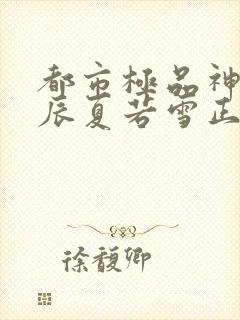 都市極品神
辰夏若雪正
徐馥卿